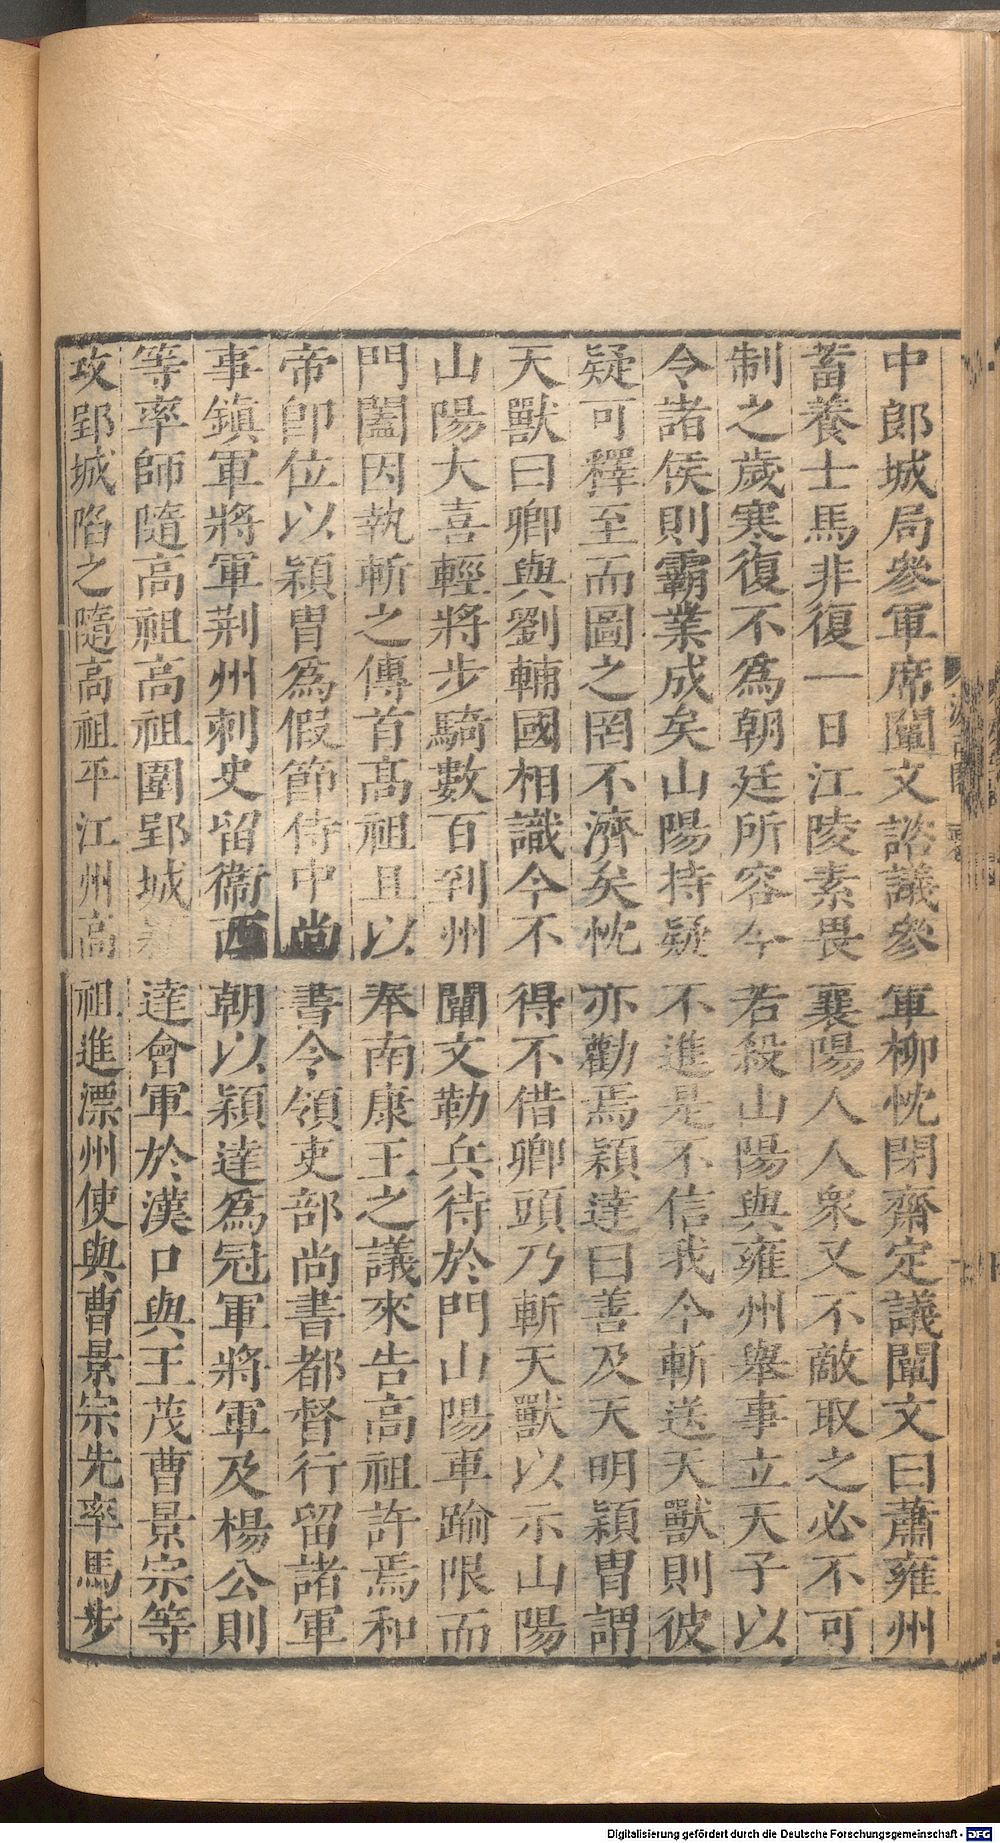 中郎城局參軍席闡文諮議參軍柳忱閉齋定議闡文曰蕭雍州
蓄養士馬非復一日江陵素畏襄陽人人衆又不敵取之必不可
制之歲寒復不爲朝廷所容今若殺山陽與雍州舉事立天子以
令諸侯則霸業成矣山陽持疑不進是不信我今斬送天獸則彼
疑可釋至而圖之罔不濟矣忱亦勸焉穎達曰善及天明穎胄謂
天獸曰卿與劉輔國相識今不得不借卿頭乃斬天獸以示山陽
山陽大喜輕將步騎數百到州闡文勒兵待於門山陽車踰限而
門闔因執斬之傳首高祖且以奉南康王之議來告高祖許焉和
帝卽位以穎胄爲假節侍中尚書令領吏部尚書都督行留諸軍
事鎮軍將軍荆州刺史留衞西朝以穎達爲冠軍將軍及楊公則
等率師隨高祖高祖圍郢城達會軍於漢口與王茂曹景宗等
攻郢城陷之隨高祖平江州高祖進漂州使與曹景宗先率馬步
Digitalisierung gefördert durch die Deutsche Forschungsgemeinschaft - DFG